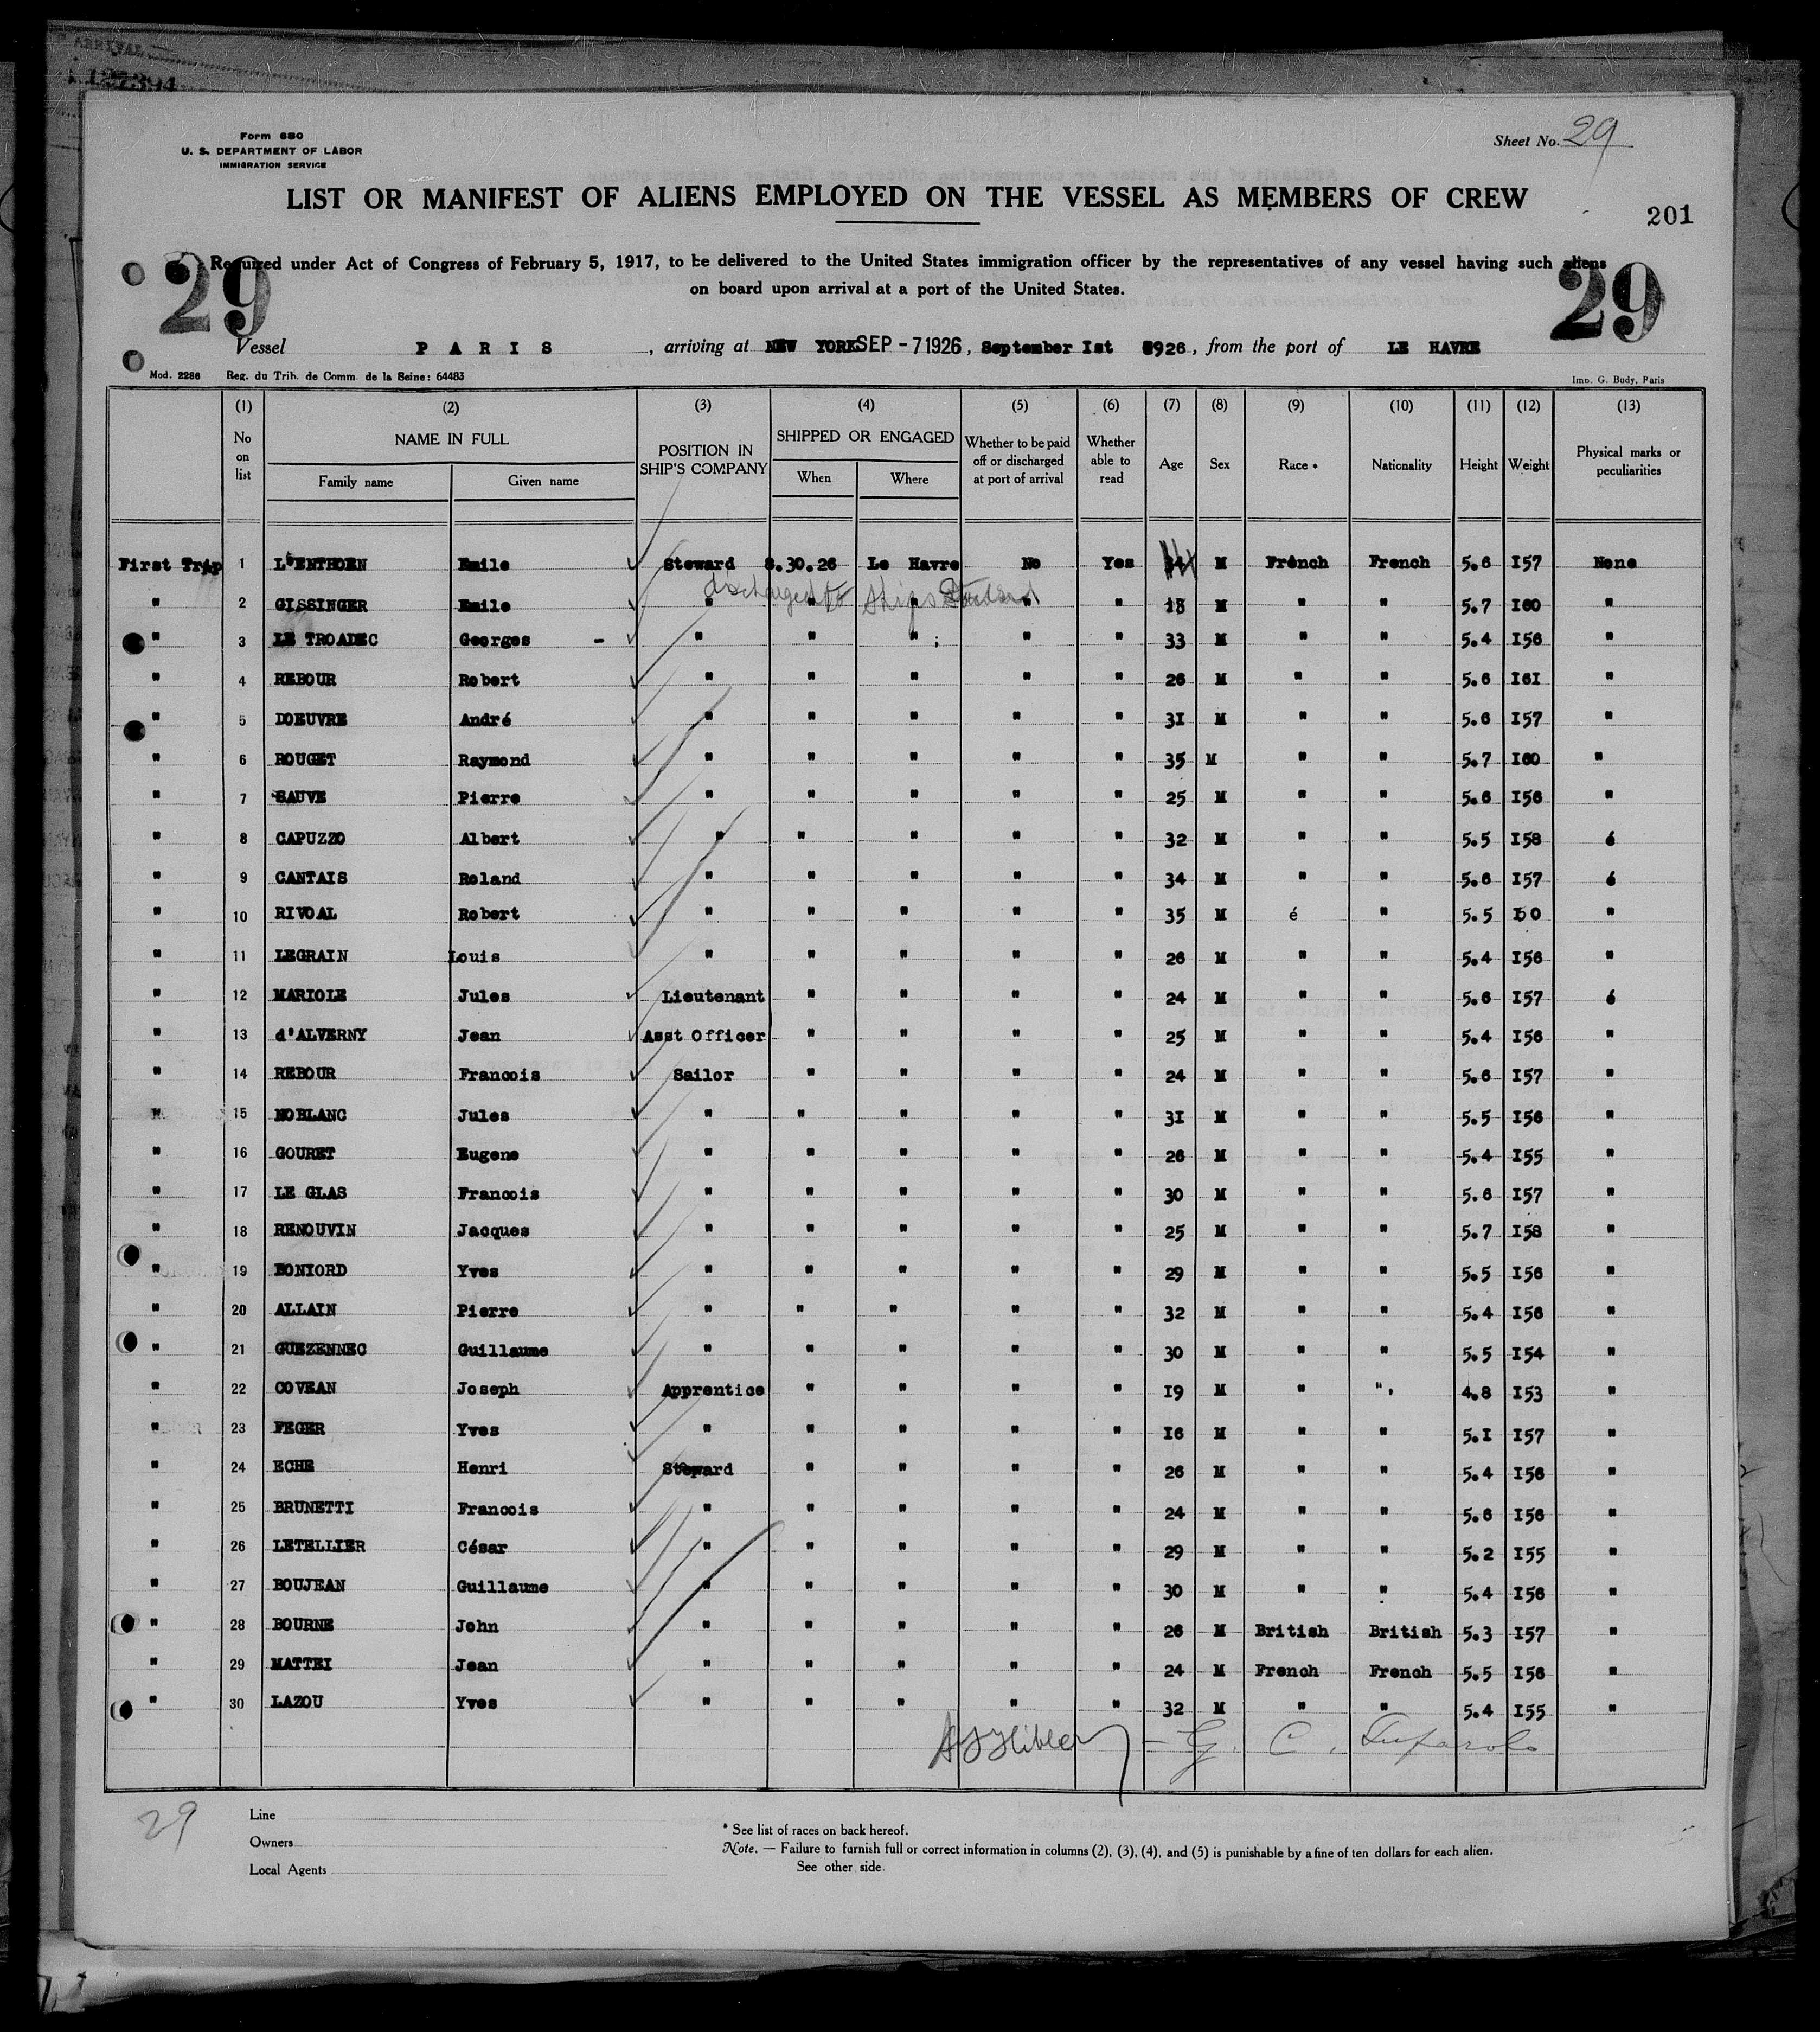 ARRIVAL
127394
Form 680
U. S. DEPARTMENT OF LABOR
IMMIGRATION SERVICE
Sheet No. 29
LIST OR MANIFEST OF ALIENS EMPLOYED ON THE VESSEL AS MEMBERS OF CREW
201
29 29
Required under Act of Congress of February 5, 1917, to be delivered to the United States immigration officer by the representatives of any vessel having such aliens
on board upon arrival at a port of the United States.
Vessel PARIS, arriving at NEW YORK SEP - 7 1926, September Ist 1926, from the port of LE HAVRE
Mod. 2286 Reg. du Trib. de Comm. de la Seine: 64483 Imp. G. Budy, Paris
(1) (2) (3) (4) (5) (6) (7) (8) (9) (10) (11) (12) (13)
No on list NAME IN FULL Family name Given name POSITION IN SHIP'S COMPANY SHIPPED OR ENGAGED When Where Whether to be paid off or discharged at port of arrival Whether able to read Age Sex Race * Nationality Height Weight Physical marks or peculiarities
First Trip 1 L'ENTHOEN Emile Steward 8.30.26 Le Havre No Yes M French French 5.6 I57 None
discharged to Ships
" 2 GISSINGER Emile " " " " " 18 M " " 5.7 I60 "
" 3 LE TROADEC Georges - " " " ; " " 33 M " " 5.4 I56 "
" 4 REBOUR Robert " " " " " 26 M " " 5.6 I6I "
" 5 DOEUVRE André " " " " " 3I M " " 5.6 I57 "
" 6 ROUGET Raymond " " " " " 35 M " " 5.7 I60 "
" 7 SAUVE Pierre " " " " " 25 M " " 5.6 I56 "
" 8 CAPUZZO Albert " " " " " 32 M " " 5.5 I58 6
" 9 CANTAIS Roland " " " " " 34 M " " 5.6 I57 6
" 10 RIVOAL Robert " " " " " 35 M é " 5.5 "
" 11 LEGRAIN Louis " " " " " 26 M " " 5.4 I56 "
" 12 MARIOLE Jules Lieutenant " " " " 24 M " " 5.6 I57 6
" 13 d'ALVERNY Jean Asst Officer " " " " 25 M " " 5.4 I56 "
" 14 REBOUR Francois Sailor " " " " 24 M " " 5.6 I57 "
" 15 NOBLANC Jules " " " " " 3I M " " 5.5 I56 "
" 16 GOURET Eugene " " " " " 26 M " " 5.4 I55 "
" 17 LE GLAS Francois " " " " " 30 M " " 5.6 I57 "
" 18 RENOUVIN Jacques " " " " " 25 M " " 5.7 I58 "
" 19 BONIORD Yves " " " " " 29 M " " 5.5 I56 "
" 20 ALLAIN Pierre " " " " " 32 M " " 5.4 I56 "
" 21 GUEZENNEC Guillaume " " " " " 30 M " " 5.5 I54 "
" 22 COVEAN Joseph Apprentice " " " " I9 M " ". 4.8 I53 "
" 23 FEGER Yves " " " " " I6 M " " 5.I I57 "
" 24 ECHE Henri Steward " " " " 26 M " " 5.4 I56 "
" 25 BRUNETTI Francois " " " " " 24 M " " 5.6 I56 "
" 26 LETELLIER César " " " " " 29 M " " 5.2 I55 "
" 27 BOUJEAN Guillaume " " " " " 30 M " " 5.4 I56 "
" 28 BOURNE John " " " " " 26 M British British 5.3 I57 "
" 29 MATTEI Jean " " " " " 24 M French French 5.5 I56 "
" 30 LAZOU Yves " " " " " 32 M " " 5.4 I55 "
29
Line
Owners
Local Agents
* See list of races on back hereof.
Note. — Failure to furnish full or correct information in columns (2), (3), (4), and (5) is punishable by a fine of ten dollars for each alien.
See other side.